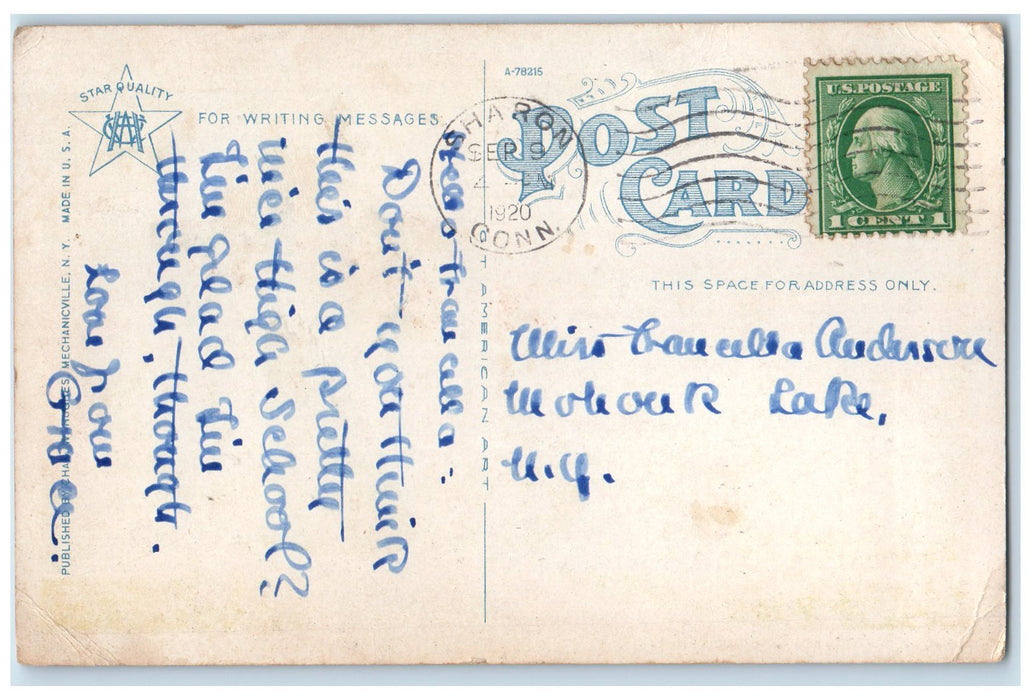 STAR QUALITY
A-78215
FOR WRITING MESSAGES
POST
CARD
SHARON
SEP 9
1920
CONN.
U.S. POSTAGE
1 CENT 1
THIS SPACE FOR ADDRESS ONLY.
Miss Francella Anderson
Mohonk Lake,
N.Y.
Dear Francella:
Don't you think
this is a pretty
nice High School?
I'm glad I'm
through, though.
Love from
PUBLISHED BY CHAS. W. HUGHES, MECHANICVILLE, N. Y. MADE IN U. S. A.
AMERICAN ART